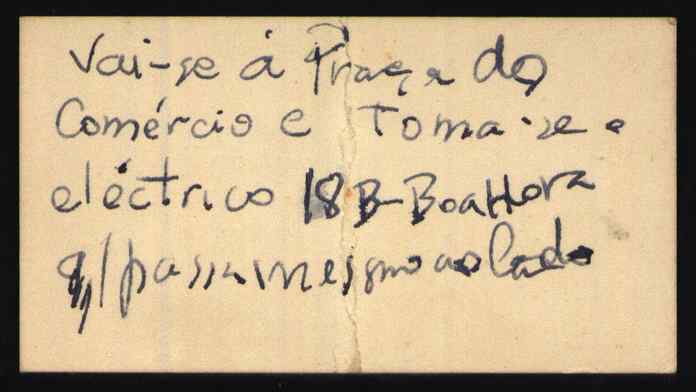 Vai-se á Praça do
Comércio e Toma-se o
eléctrico 18B-Boa Hora
q/ passa mesmo ao lado